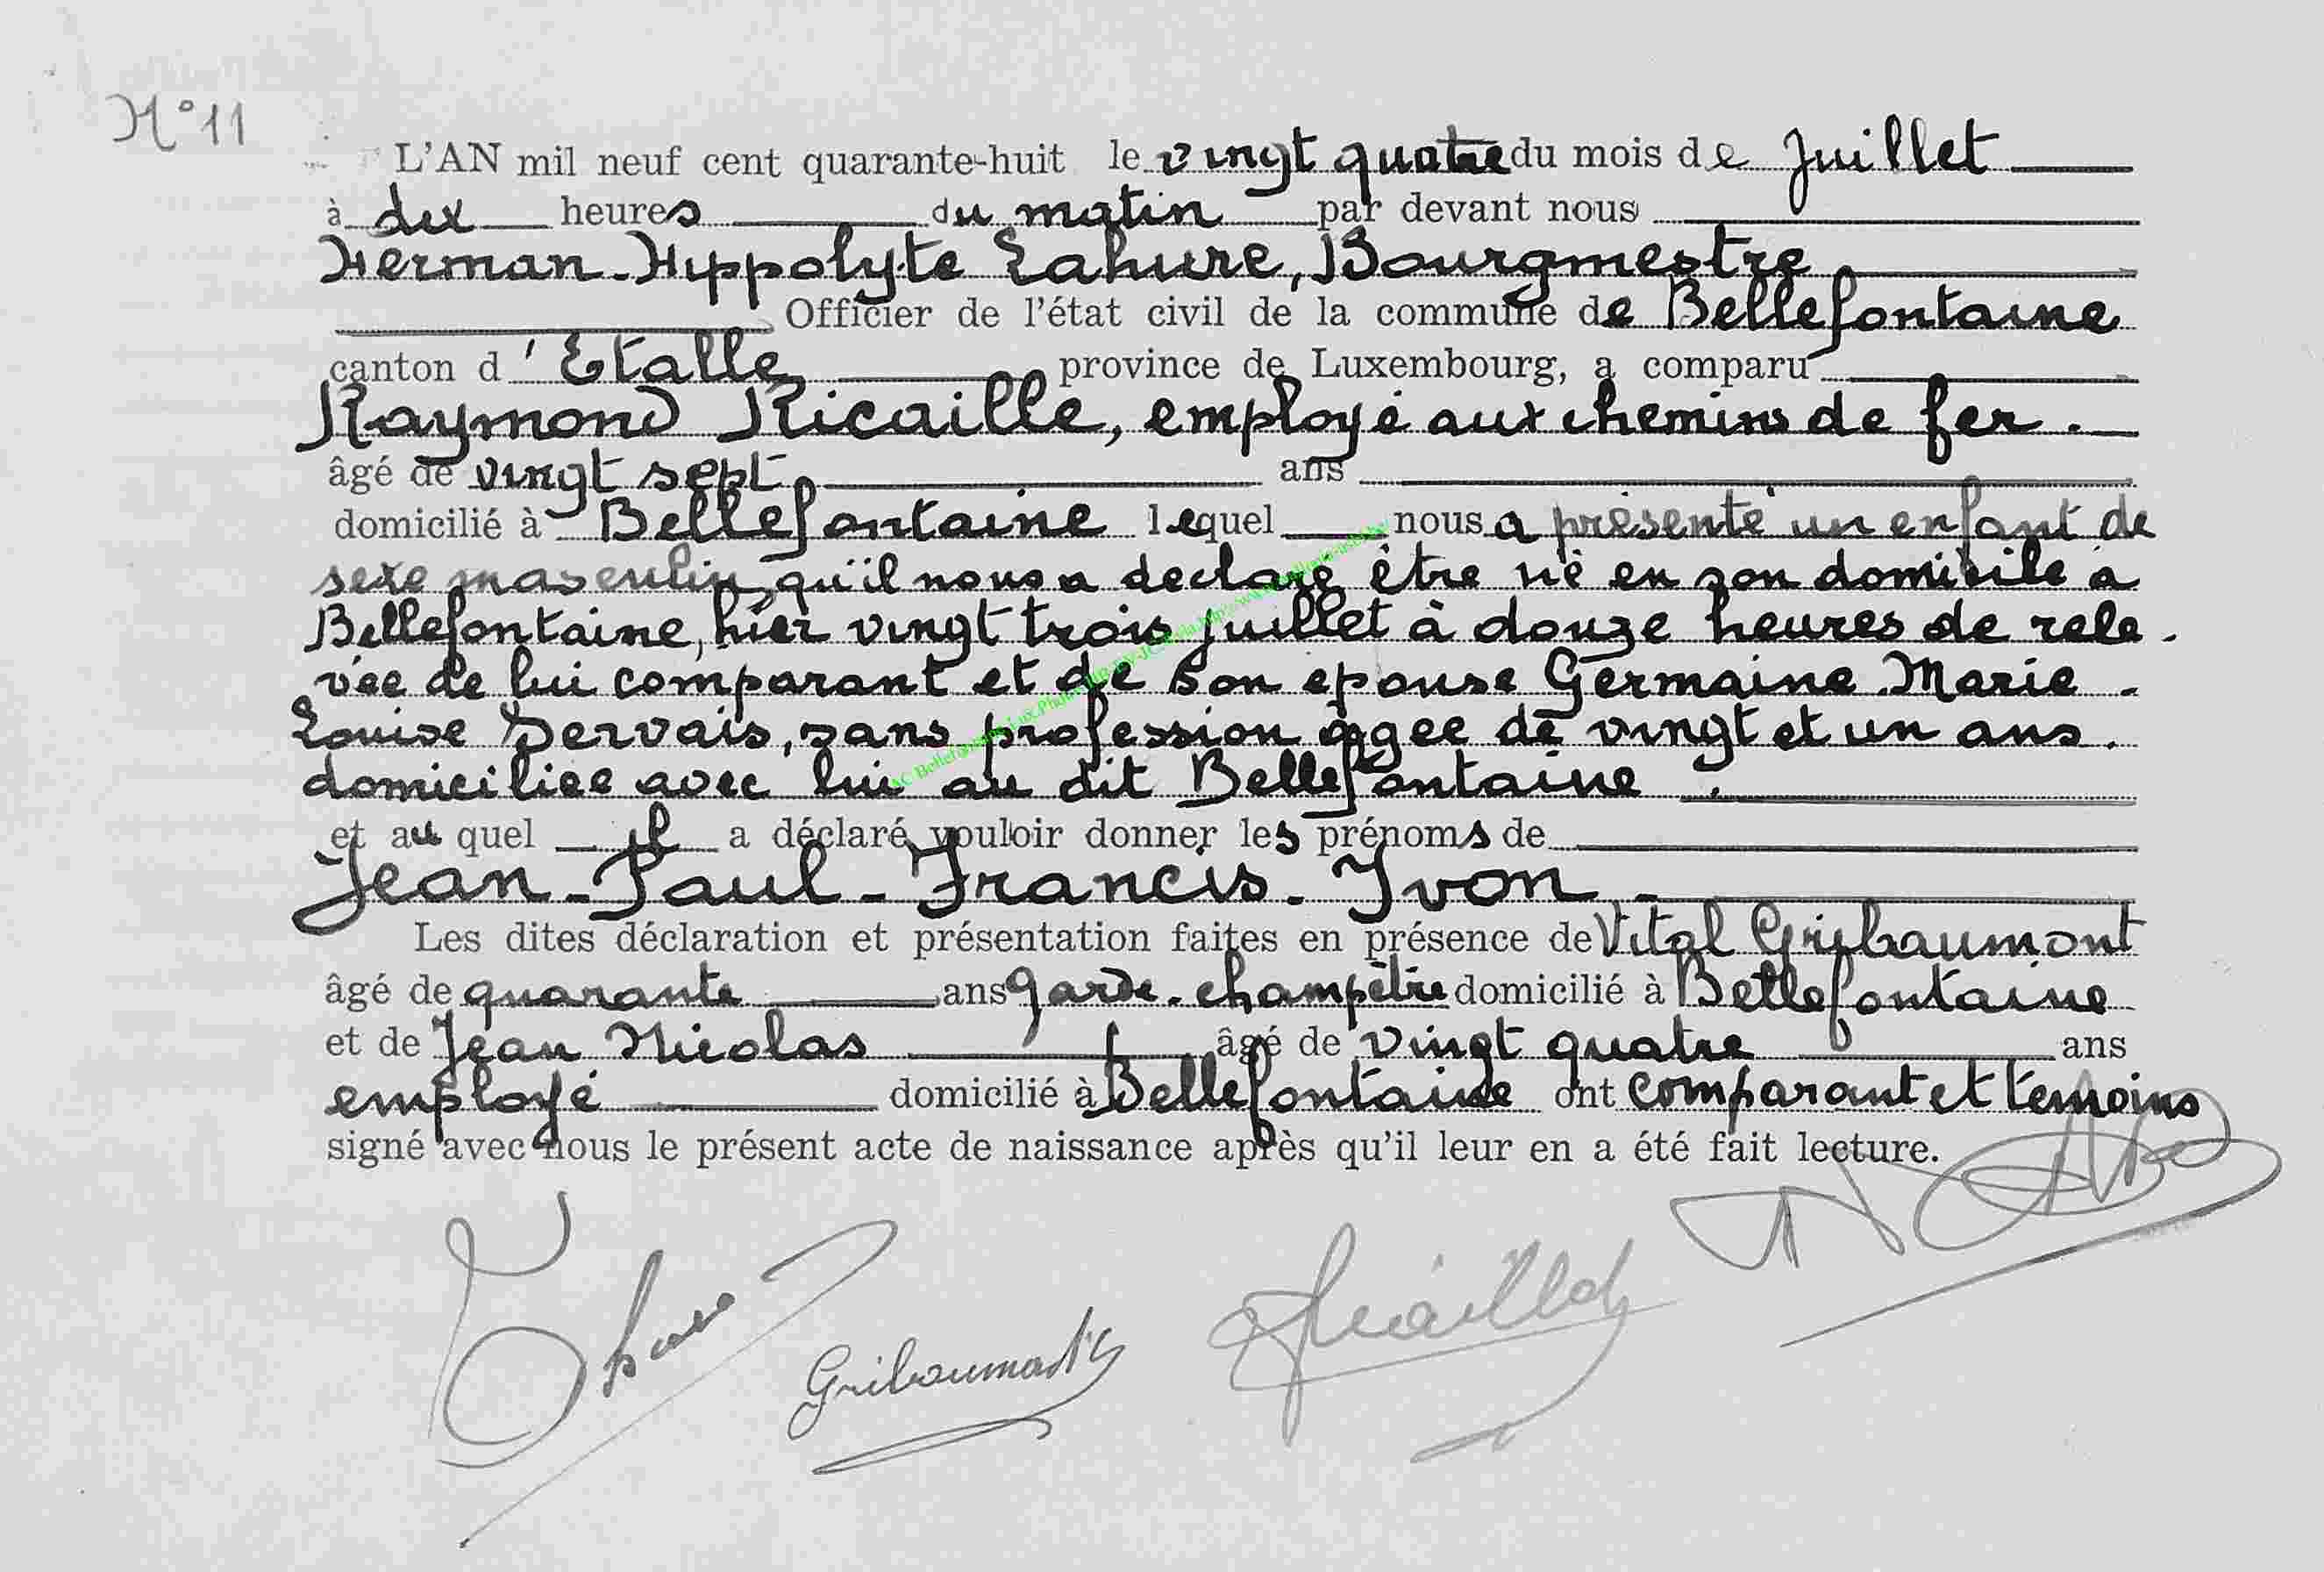 N°11
L'AN mil neuf cent quarante-huit le vingt quatre du mois de Juillet
à dix heures du matin par devant nous
Herman-Hippolyte Lahure, Bourgmestre
Officier de l'état civil de la commune de Bellefontaine
canton d'Etalle province de Luxembourg, a comparu
Raymond Ricaille, employé aux chemins de fer.
âgé de vingt sept ans
domicilié à Bellefontaine lequel nous a présenté un enfant de
sexe masculin, qu'il nous a declaré être né en son domicile a
Bellefontaine, hier vingt trois juillet à douze heures de rele-
vée de lui comparant et de son epouse Germaine-Marie-
Louise Servais, sans profession agee de vingt et un ans.
domiciliee avec lui au dit Bellefontaine.
et au quel il a déclaré vouloir donner les prénoms de
Jean-Paul-Francis-Yvon-
Les dites déclaration et présentation faites en présence de Vital Gribaumont
âgé de quarante ans garde-champêtre domicilié à Bellefontaine
et de Jean Nicolas âgé de vingt quatre ans
employé domicilié à Bellefontaine ont comparant et temoins
signé avec nous le présent acte de naissance après qu'il leur en a été fait lecture.
Gribaumont